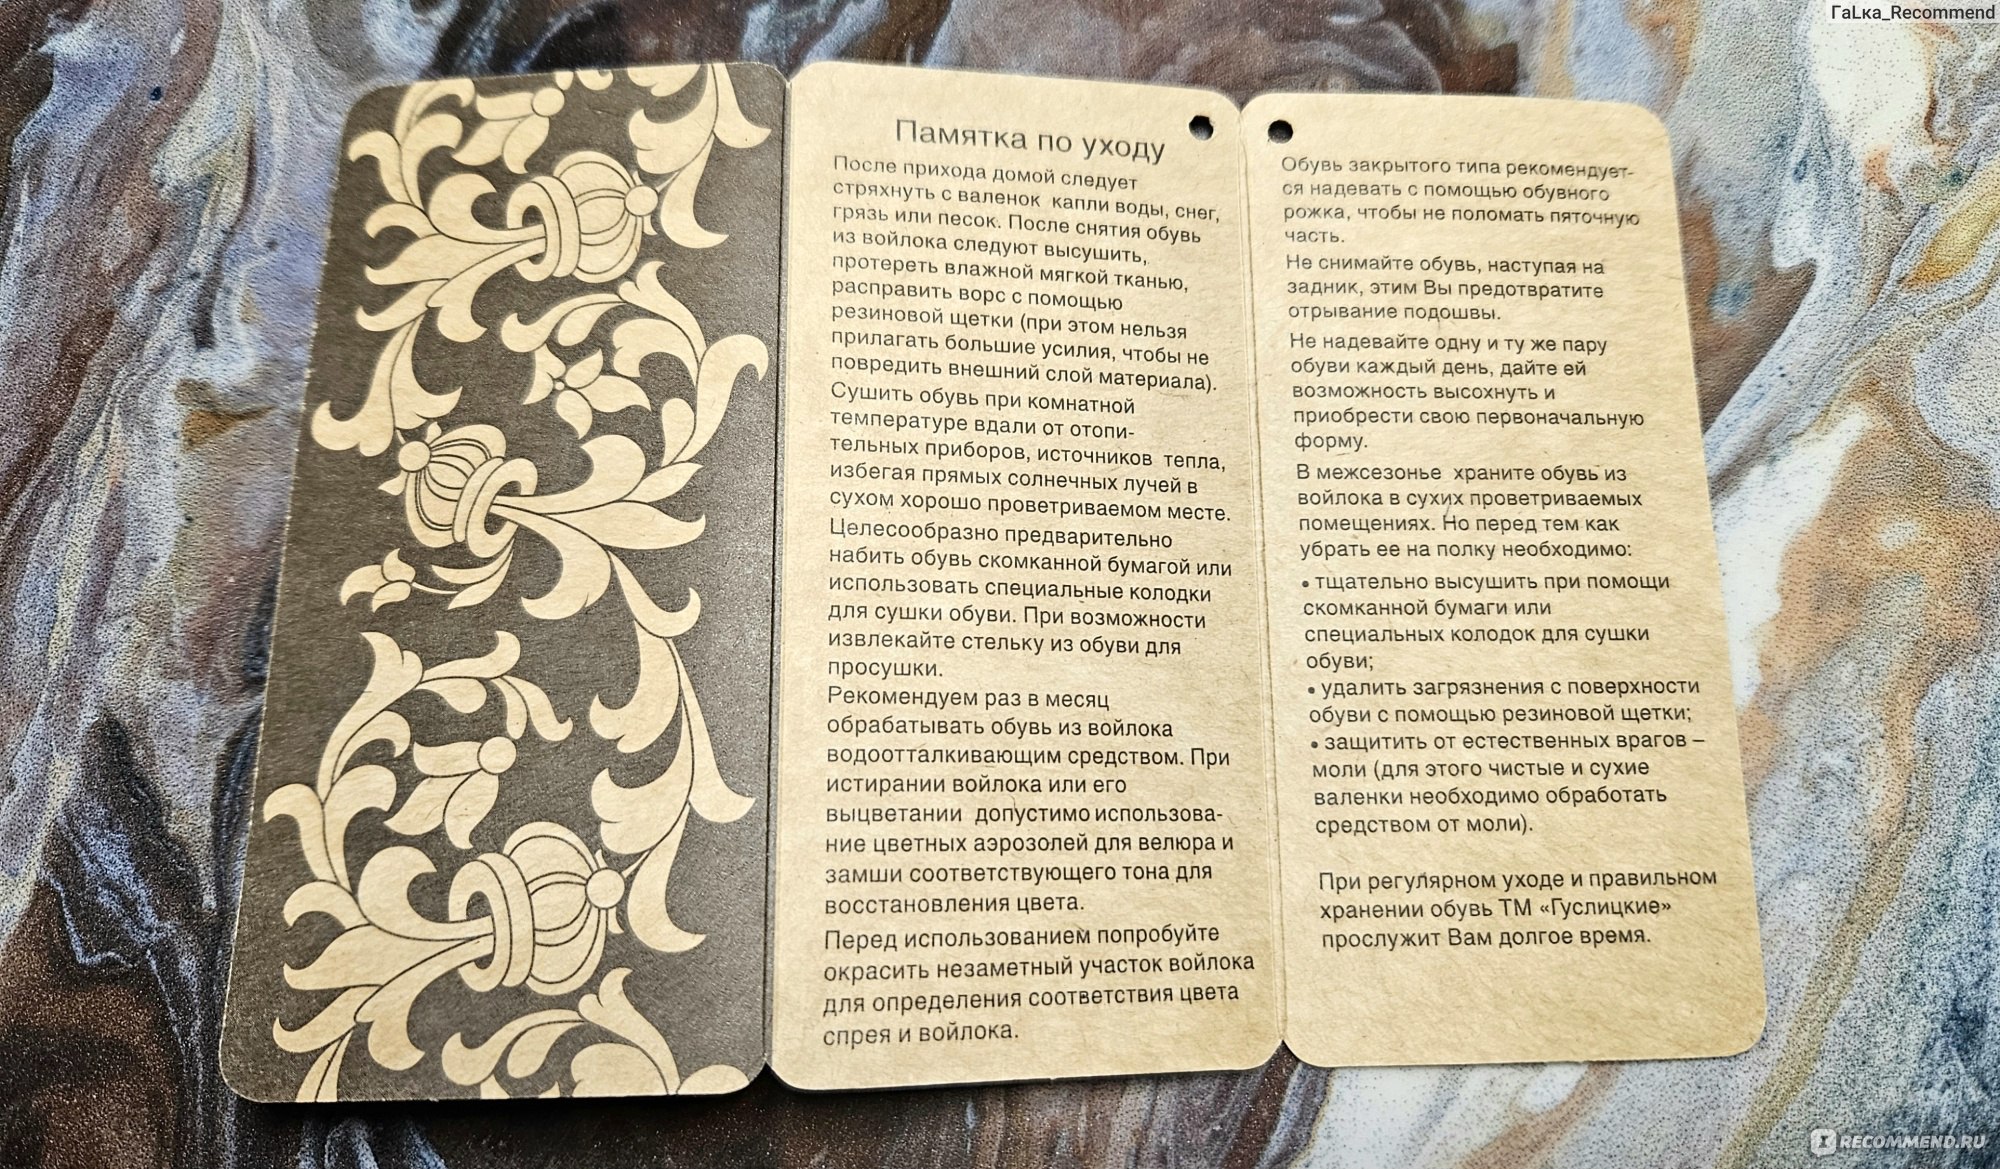 ГаLка_Recommend
Памятка по уходу
После прихода домой следует
стряхнуть с валенок капли воды, снег,
грязь или песок. После снятия обувь
из войлока следуют высушить,
протереть влажной мягкой тканью,
расправить ворс с помощью
резиновой щетки (при этом нельзя
прилагать большие усилия, чтобы не
повредить внешний слой материала).
Сушить обувь при комнатной
температуре вдали от отопи-
тельных приборов, источников тепла,
избегая прямых солнечных лучей в
сухом хорошо проветриваемом месте.
Целесообразно предварительно
набить обувь скомканной бумагой или
использовать специальные колодки
для сушки обуви. При возможности
извлекайте стельку из обуви для
просушки.
Рекомендуем раз в месяц
обрабатывать обувь из войлока
водоотталкивающим средством. При
истирании войлока или его
выцветании допустимо использова-
ние цветных аэрозолей для велюра и
замши соответствующего тона для
восстановления цвета.
Перед использованием попробуйте
окрасить незаметный участок войлока
для определения соответствия цвета
спрея и войлока.
Обувь закрытого типа рекомендует-
ся надевать с помощью обувного
рожка, чтобы не поломать пяточную
часть.
Не снимайте обувь, наступая на
задник, этим Вы предотвратите
отрывание подошвы.
Не надевайте одну и ту же пару
обуви каждый день, дайте ей
возможность высохнуть и
приобрести свою первоначальную
форму.
В межсезонье храните обувь из
войлока в сухих проветриваемых
помещениях. Но перед тем как
убрать ее на полку необходимо:
• тщательно высушить при помощи
скомканной бумаги или
специальных колодок для сушки
обуви;
• удалить загрязнения с поверхности
обуви с помощью резиновой щетки;
• защитить от естественных врагов –
моли (для этого чистые и сухие
валенки необходимо обработать
средством от моли).
При регулярном уходе и правильном
хранении обувь ТМ «Гуслицкие»
прослужит Вам долгое время.
RECOMMEND.RU